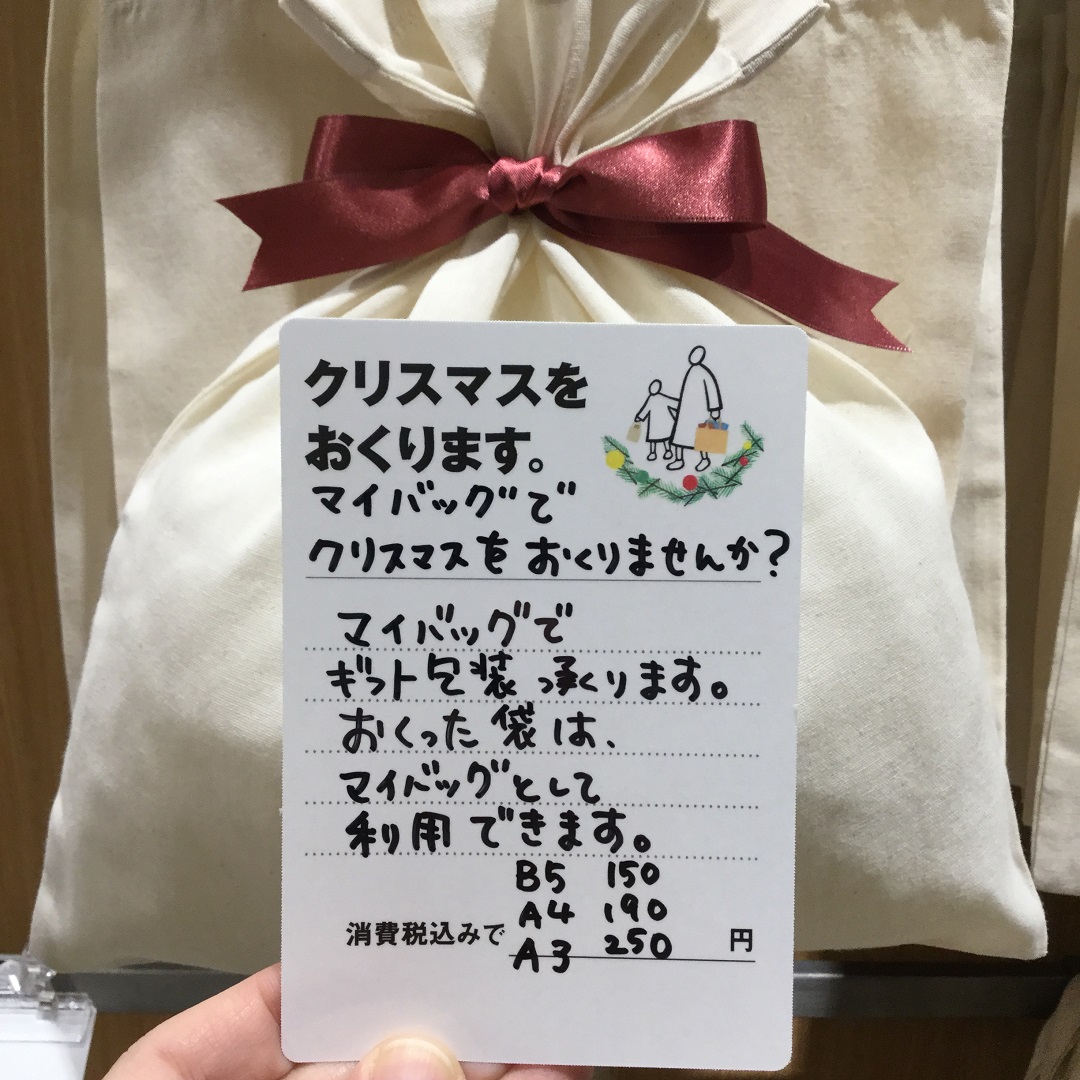 クリスマスを
おくります。
マイバッグで
クリスマスをおくりませんか?
マイバッグで
ギフト包装承ります。
おくった袋は、
マイバッグとして
利用できます。
B5 150
A4 190
A3 250
消費税込みで 円